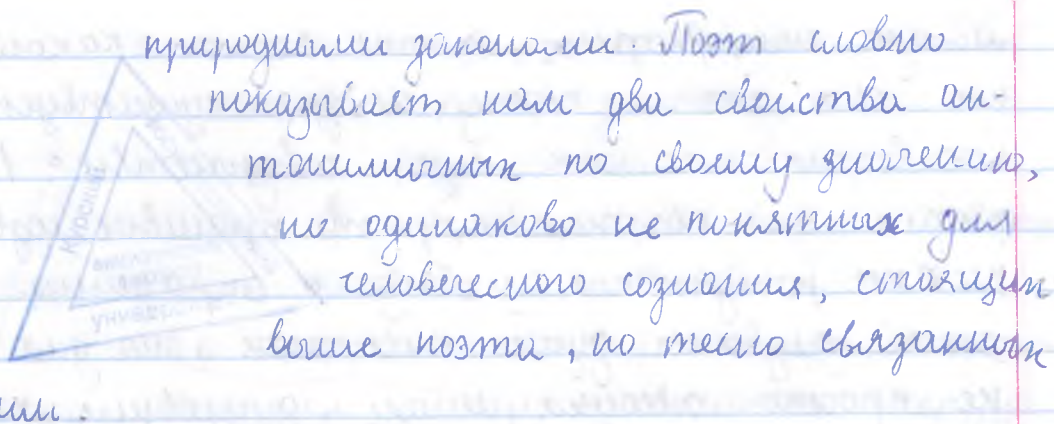 природными законами. Поэт словно
показывает нам два свойства ан-
тонимичных по своему значению,
но одинаково не понятных для
человеческого сознания, стоящих
выше поэта, но тесно связанных
ним.